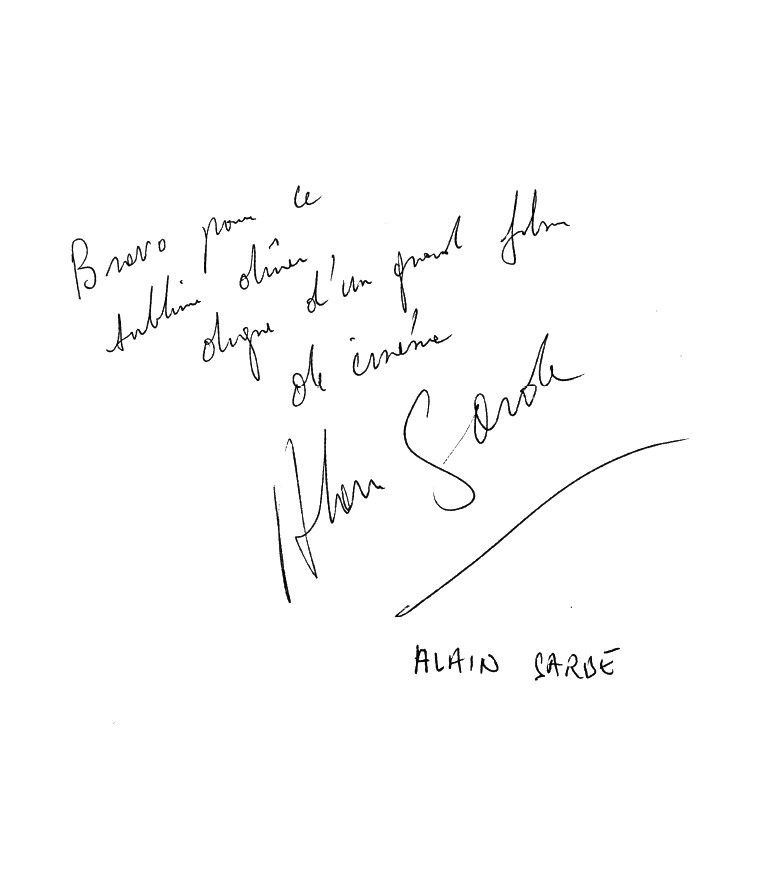 Bravo pour ce
sublime dîner
digne d'un grand film
de cinéma
Alain Sarde
ALAIN SARDE